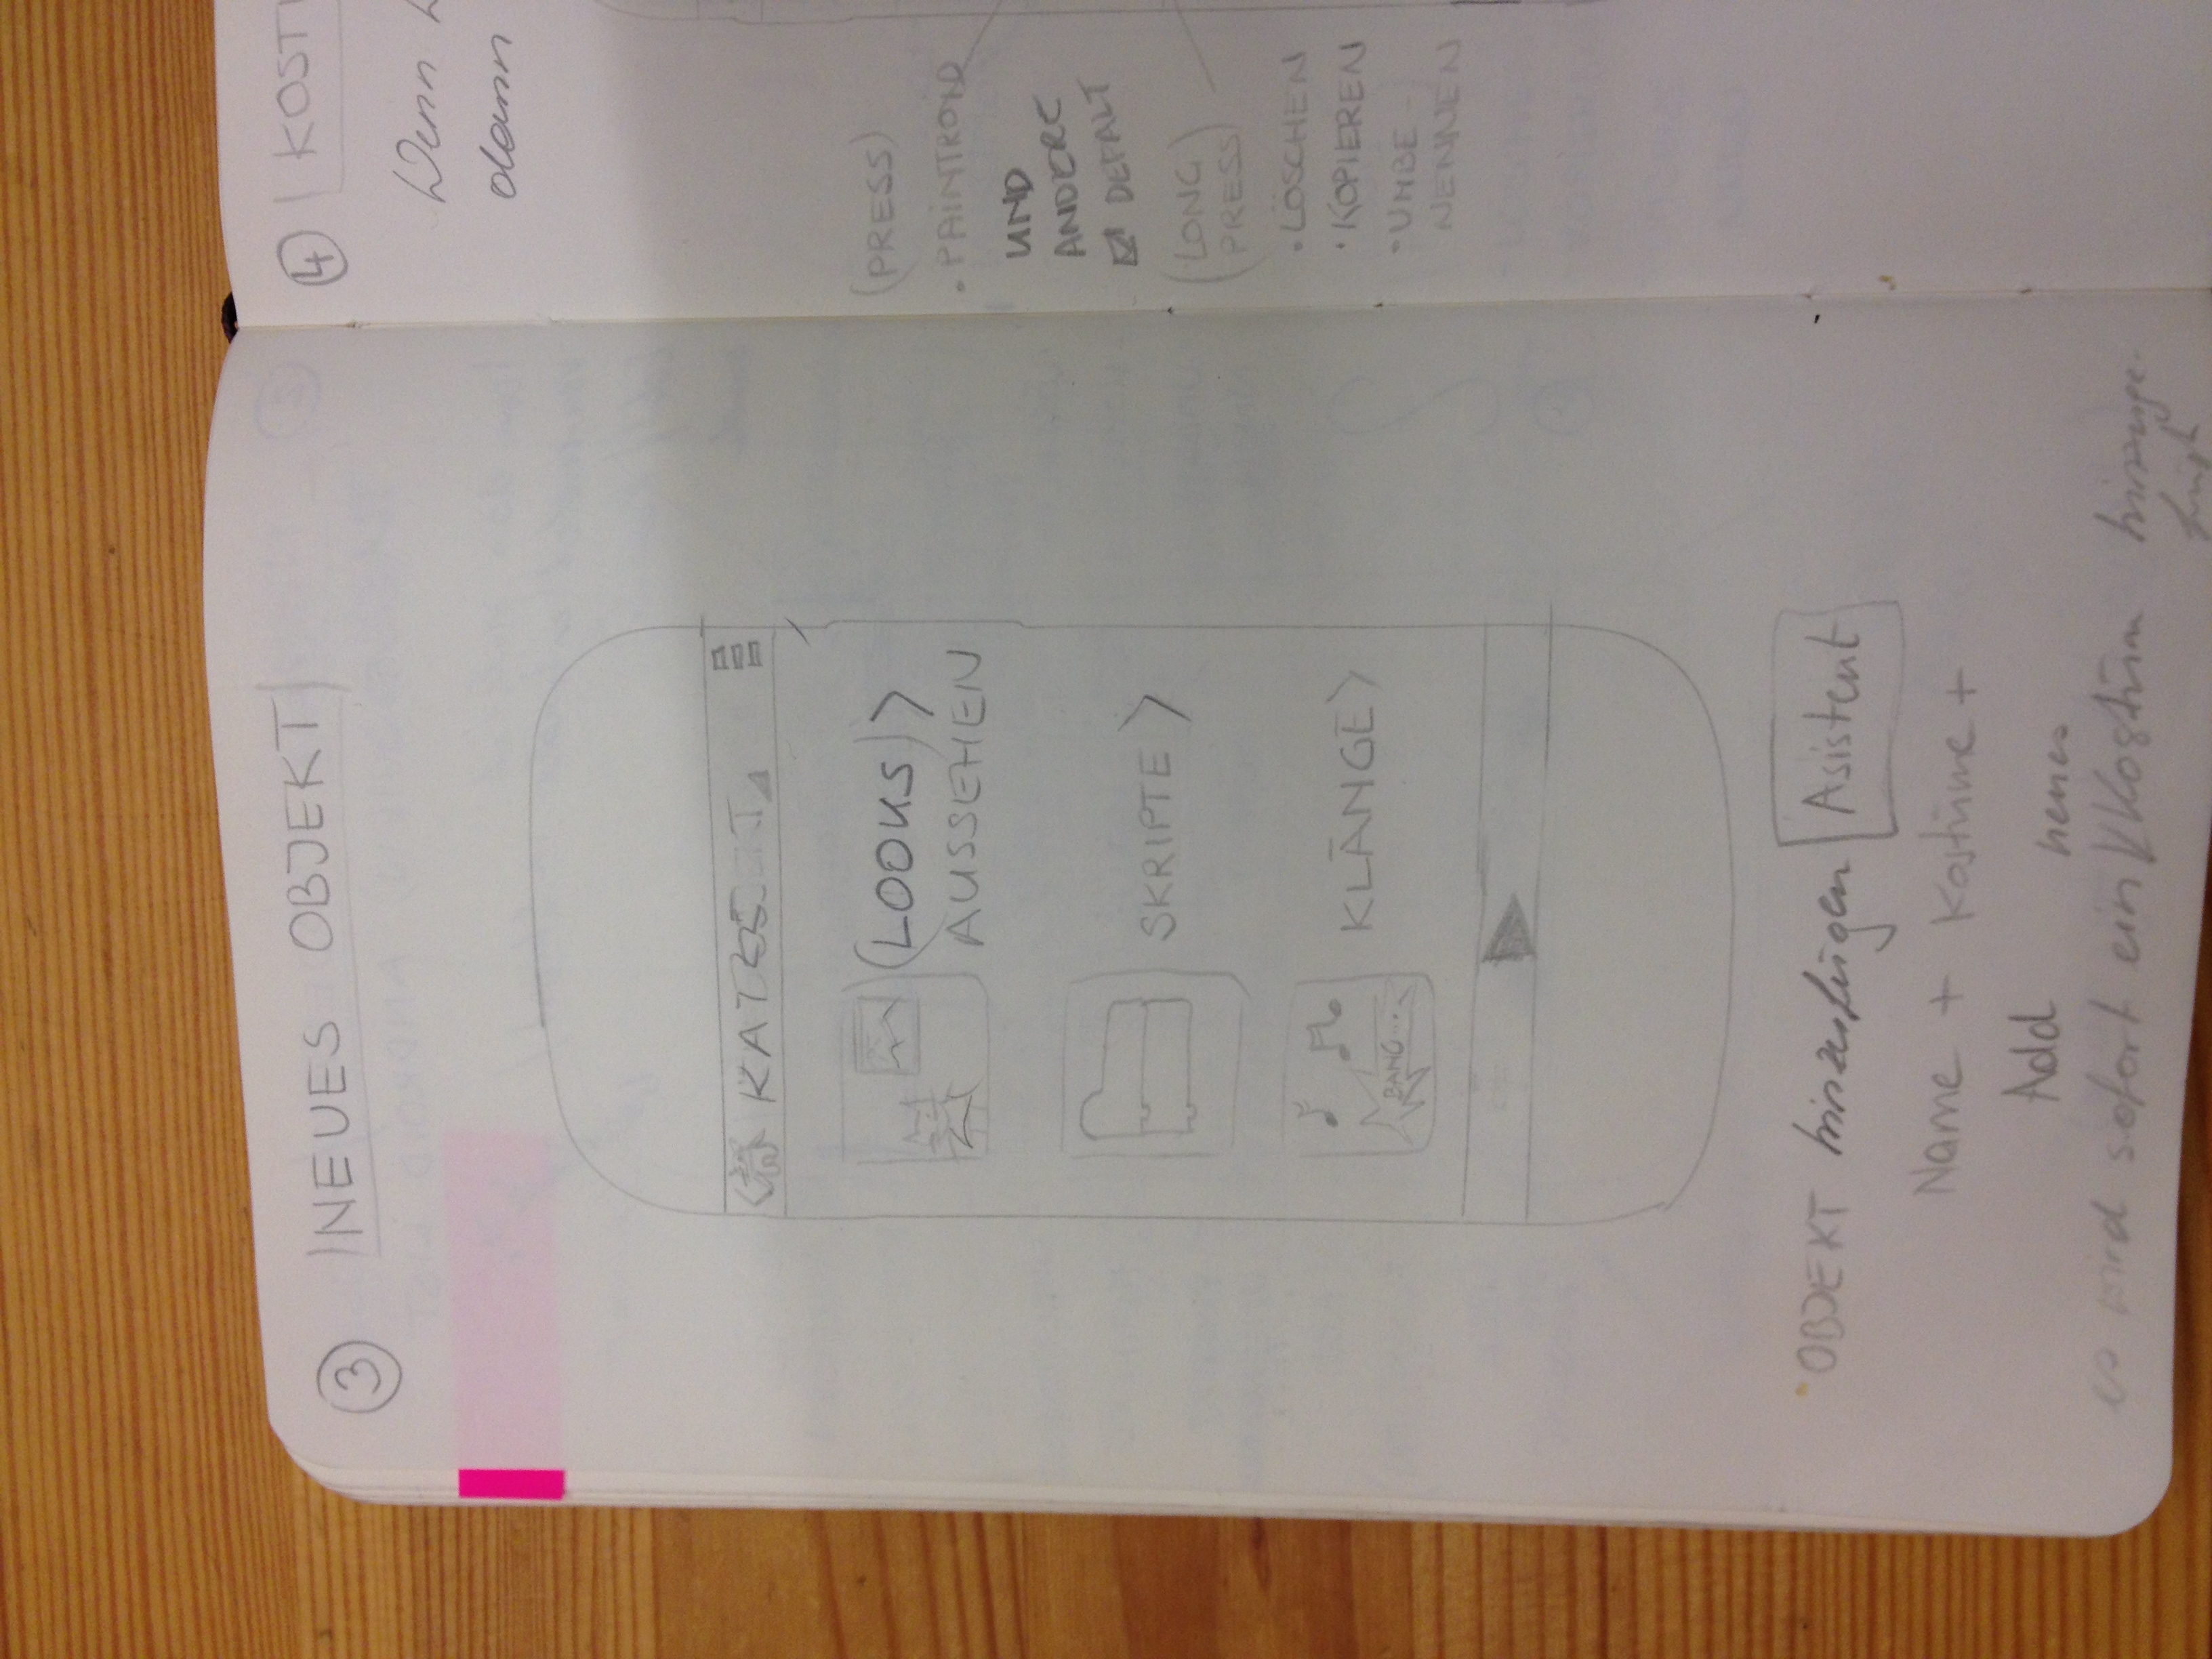 3 NEUES OBJEKT
< KATZE
(LOOKS) >
AUSSEHEN
SKRIPTE >
KLÄNGE >
BANG...
OBJEKT hinzufügen Asistent
Name + Kostüme +
Add neues
es wird sofort ein Kostüm hinzuge-
fügt
4 KOST
Wenn
dann
(PRESS)
• PAINTROID
UND
ANDERE
☑ DEFALT
(LONG
PRESS)
• LÖSCHEN
• KOPIEREN
• UMBE-
NENNEN